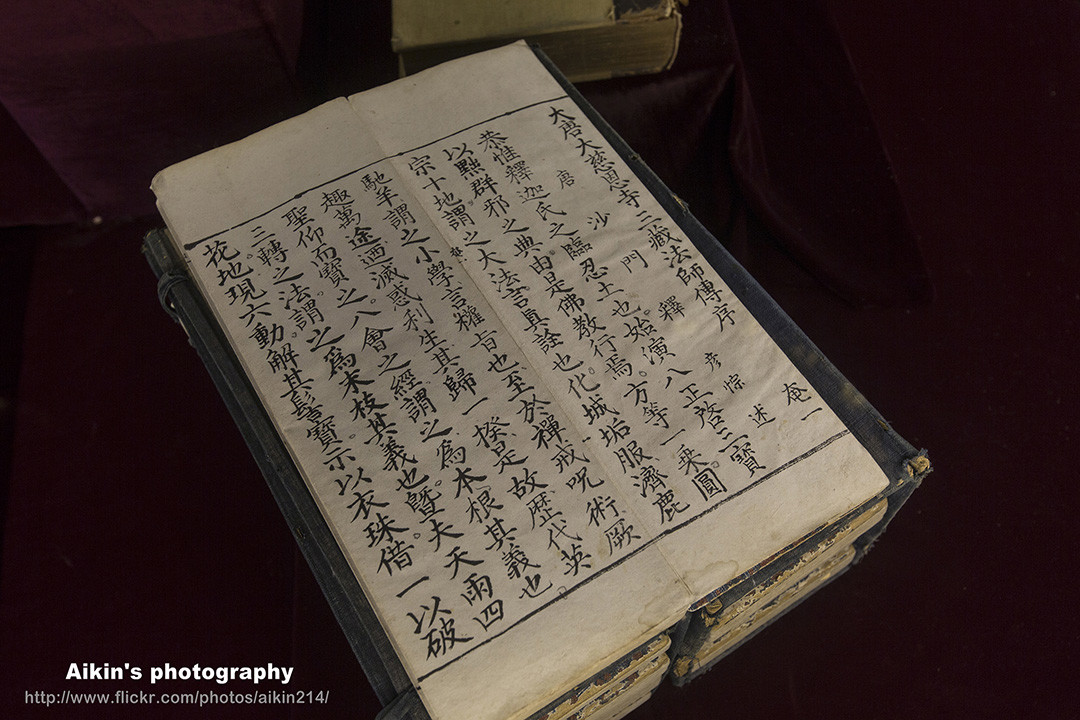 大唐大慈恩寺三藏法師傳序 奄一
唐沙門釋彥悰述
恭惟釋迦氏之臨忍土也始演八正啓三寶
以黜群邪之典由是佛教行焉方等一乘圓
宗十地謂之大法言眞詮也化城垢服濟鹿
馳羊謂之小學言權旨也至於禪戒呪術厥
趣萬途迺滅惑利生其歸一揆是故歷代英
聖仰而寶之八會之經謂之為本根其義也
三轉之法謂之為末枝其義也暨夫天雨四
花地現六動解其髻寶示以衣珠借一以破
Aikin's photography
http://www.flickr.com/photos/aikin214/